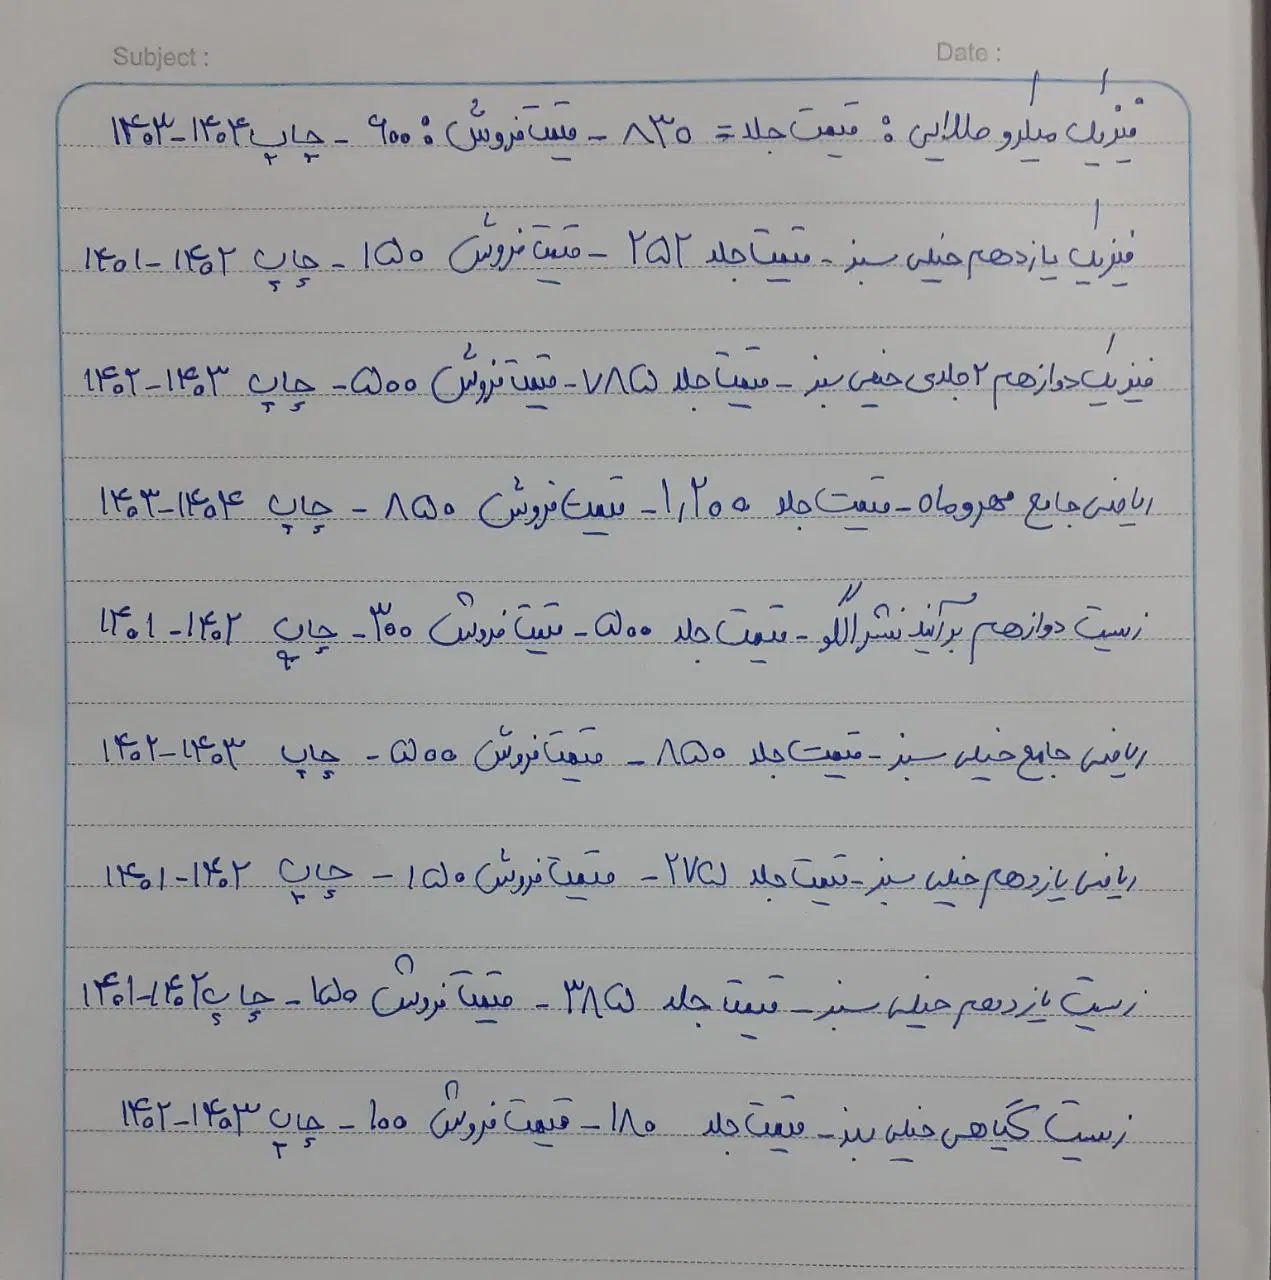 Subject :
Date :
فیزیک میکرو طلایی : قیمت جلد = ۸۳۰ - قیمت فروش : ۶۰۰ - چاپ ۱۴۰۴-۱۴۰۳
فیزیک یازدهم خیلی سبز - قیمت جلد ۲۵۲ - قیمت فروش ۱۵۰ - چاپ ۱۴۰۲-۱۴۰۱
فیزیک دوازهم ۲ جلدی خیلی سبز - قیمت جلد ۷۸۵ - قیمت فروش ۵۰۰ - چاپ ۱۴۰۳-۱۴۰۲
ریاضی جامع مهروماه - قیمت جلد ۱,۲۰۰ - قیمت فروش ۸۵۰ - چاپ ۱۴۰۴-۱۴۰۳
زیست دوازهم برآیند نشر الگو - قیمت جلد ۵۰۰ - قیمت فروش ۳۰۰ - چاپ ۱۴۰۲-۱۴۰۱
ریاضی جامع خیلی سبز - قیمت جلد ۸۵۰ - قیمت فروش ۵۰۰ - چاپ ۱۴۰۳-۱۴۰۲
ریاضی یازدهم خیلی سبز - قیمت جلد ۲۷۵ - قیمت فروش ۱۵۰ - چاپ ۱۴۰۲-۱۴۰۱
زیست یازدهم خیلی سبز - قیمت جلد ۳۸۵ - قیمت فروش ۱۵۰ - چاپ ۱۴۰۲-۱۴۰۱
زیست گیاهی خیلی سبز - قیمت جلد ۱۸۰ - قیمت فروش ۱۰۰ - چاپ ۱۴۰۳-۱۴۰۲